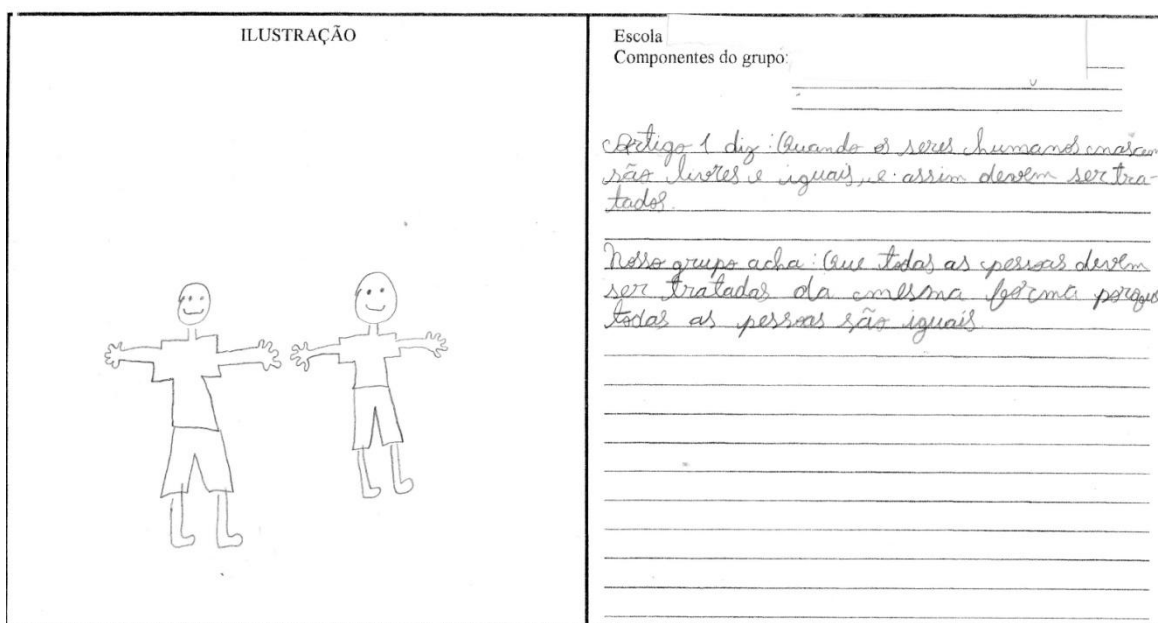 ILUSTRAÇÃO
Escola
Componentes do grupo:
Artigo 1 diz: Quando os seres humanos nascem
são livres e iguais, e assim devem ser tra-
tados.
Nosso grupo acha: Que todas as pessoas devem
ser tratadas da mesma forma porque
todas as pessoas são iguais